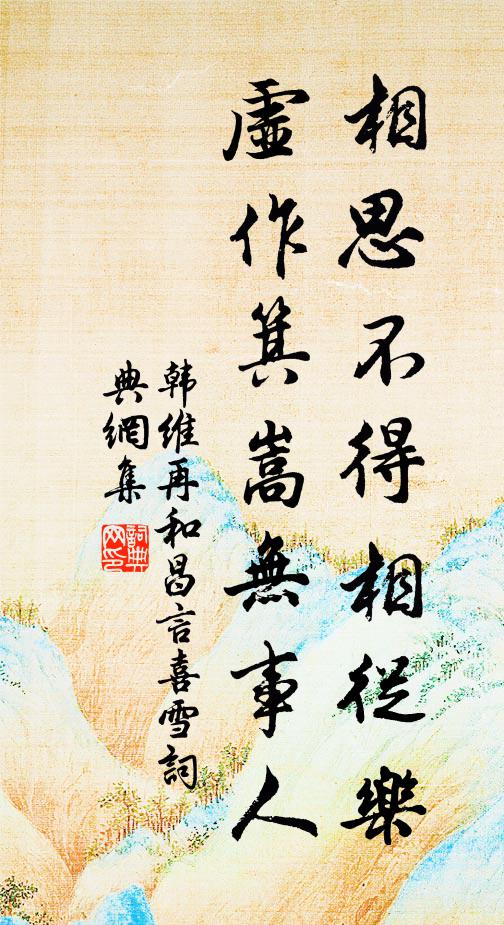 相思不得相從樂
虛作箕嵩無事人
韩维再和昌言喜雪詞
典網集